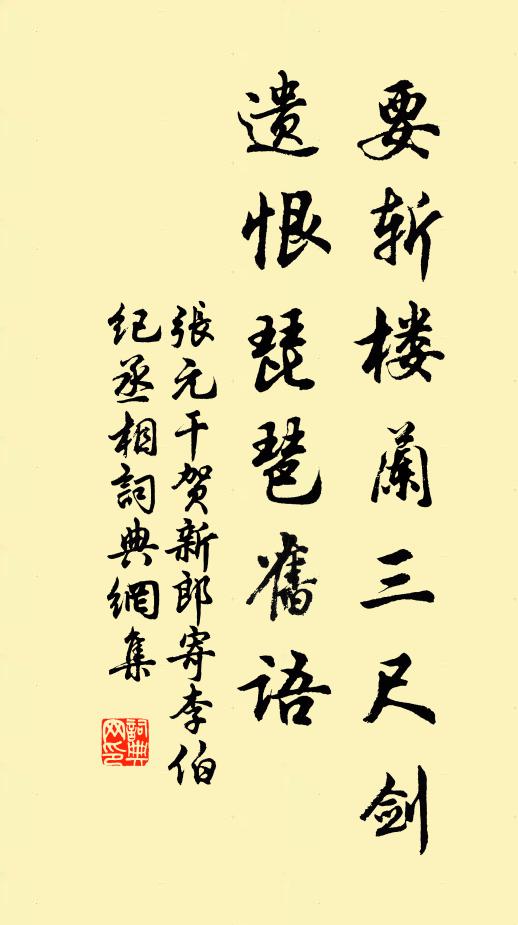 要斩楼兰三尺剑
遗恨琵琶舊语
張元干贺新郎寄李伯
纪丞相詞典網集
詞典
网印